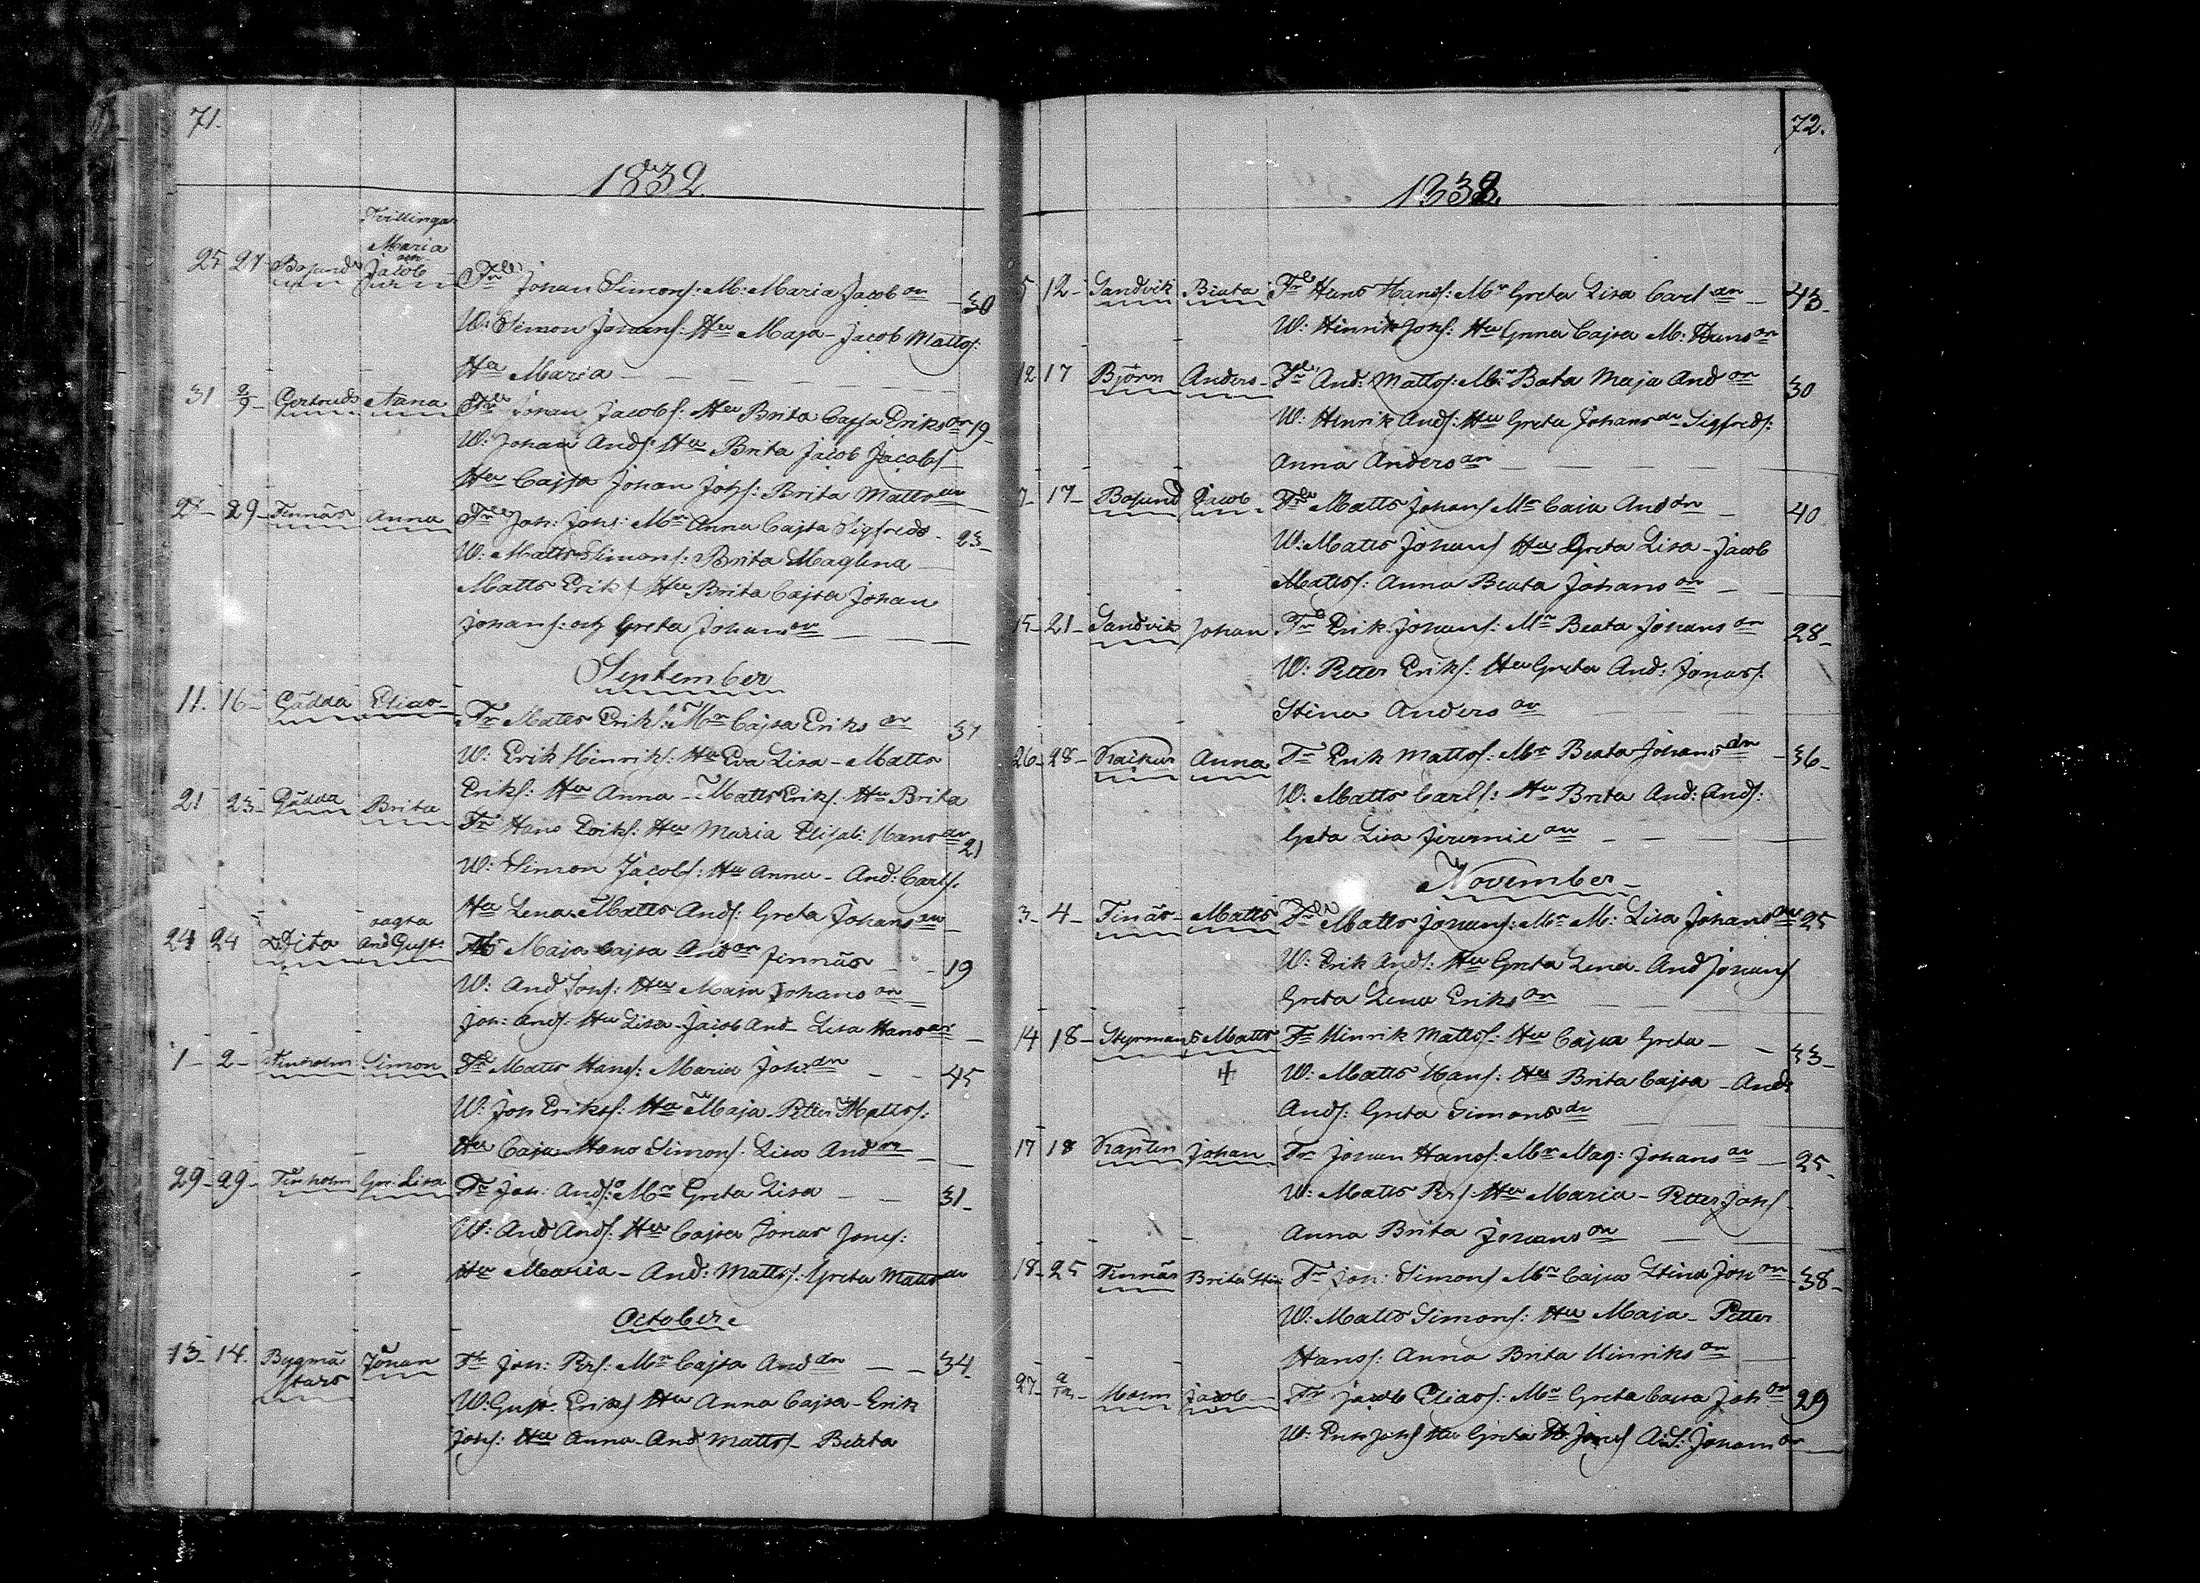 71.
1832.
Tvillingar
Maria
och
25 27 Bosund Jacob Fr Johan Simons: M: Maria Jacob dr 30
W: Simon Johans: Hu Maja - Jacob Matts:
Hu Maria
31 2/9 Gertruds Anna Fr Johan Jacobs: Hu Brita Cajsa Eriks dr 19
W: Johan Ands: Hu Brita Jacob Jacobs
Hu Cajsa Johan Johs: Brita Matts dr
27 29 Finnäs Anna Fr Joh: Johs: Mr Anna Cajsa Sigfreds 23
W: Matts Simons: Brita Maglena
Matts Eriks Hu Brita Cajsa Johan
Johans: och Greta Johans dr
September
11. 16 Gädda Elias Fr Matts Eriks: Mr Cajsa Eriks dr 37
W: Erik Hinriks: Hu Eva Lisa - Matts
Eriks: Hu Anna - Matts Eriks: Hu Brita
21 23 Gädda Brita Fr Hans Eriks: Hu Maria Elisab: Hans dr 21
W: Simon Jacobs: Hu Anna - And: Carls:
Hu Lena Matts Ands: Greta Johans dr
oagta
24 24 And Gust: Mr Maja Cajsa And dr Finnäs 19
W: And Johs: Hu Maja Johans dr
Joh: Ands: Hu Lisa - Jacob And - Lisa Hans dr
1 - 2 - Finholm Simon Fr Matts Hans: Maria Joh: dr 45
W: Joh Eriks: Hu Maja - Petter Matts:
Hu Cajsa Hans Simons: Lisa And dr
29 - 29 - Finholm Gr: Lisa Fr Joh: Ands: Mr Greta Lisa 31
W: And Ands: Hu Cajsa Jonas Jons:
Hu Maria - And: Matts: Greta Matts dr
October
13 - 14. Bygmä Johan Fr Joh: Pers: Mr Cajsa And dr 34
stars W: Gust: Eriks Hu Anna Cajsa - Erik
Johs: Hu Anna - And Matts - Beata
72.
1832.
5 12 - Sandvik Beata Fr Hans Hans: Mr Greta Lisa Carl dr 43
W: Hinrik Johs: Hu Anna Cajsa M: Hans dr
12 17 Björn Anders Fr And: Matts: Mr Beata Maja And dr 30
W: Hinrik Ands: Hu Greta Johans dr Sigfreds:
Anna Anders dr
7 - 17 - Bosund Jacob Fr Matts Johans Mr Caja And dr 40
W: Matts Johans Hu Greta Lisa - Jacob
Matts: Anna Beata Johans dr
15 - 21 - Sandvik Johan Fr Erik Johans: Mr Beata Johans dr 28
W: Petter Eriks: Hu Greta And: Jonas:
Stina Anders dr
26 - 28 - Anna Fr Erik Matts: Mr Beata Johans dr 36
W: Matts Carls: Hu Brita And: Ands:
Greta Lisa Jeremie dr
November
3 - 4 - Finäs Matts Fr Matts Johans: Mr M: Lisa Johans dr 25
W: Erik Ands: Hu Greta Lena - And Johans
Greta Lena Eriks dr
14 18 - Styrmans Matts Fr Hinrik Matts: Hu Cajsa Greta 33
W: Matts Hans: Hu Brita Cajsa - And:
Ands: Greta Simons dr
17 18 Kapten Johan Fr Johan Hans: Mr Mag: Johans dr 25
W: Matts Pers: Hu Maria - Petter Johs
Anna Brita Johans dr
18 - 25 Finnäs Brita Stin Fr Joh: Simons Mr Cajsa Stina Joh dr 38
W: Matts Simons: Hu Maja - Petter
Hans: Anna Brita Hinriks dr
27 - 2/12 Holm Jacob Fr Jacob Elias: Mr Greta Cajsa Joh dr 29
W: Erik Johs Hu Greta Jons And: Johans dr